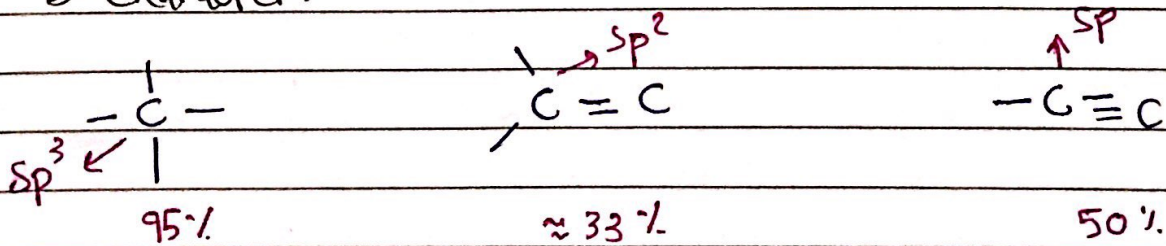 sp² sp
– C – C = C – C ≡ C
sp³
95% ≈ 33% 50%